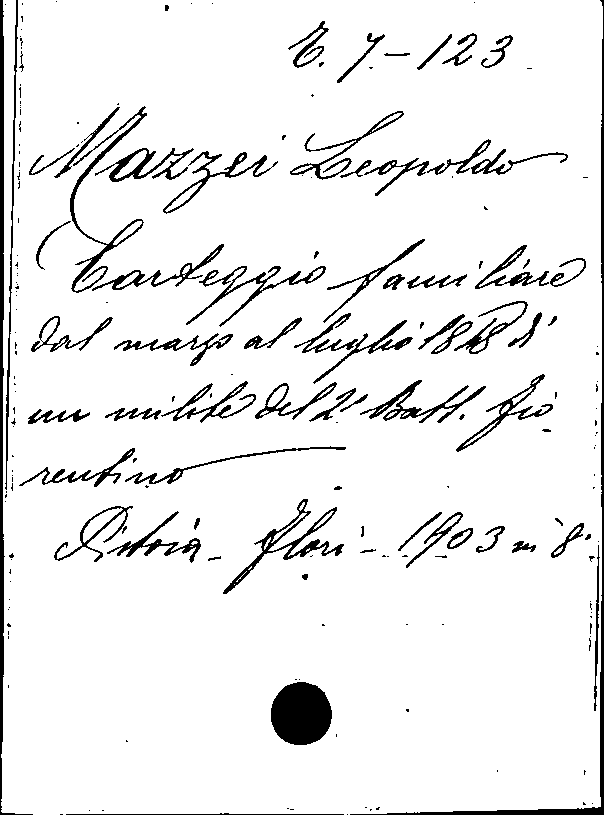 E. 7 - 123
Mazzei Leopoldo
Carteggio familiare
dal marzo al luglio 1848 di
un milite del 2° Batt. fio-
rentino
Pistoia - Flori - 1903 in 8°